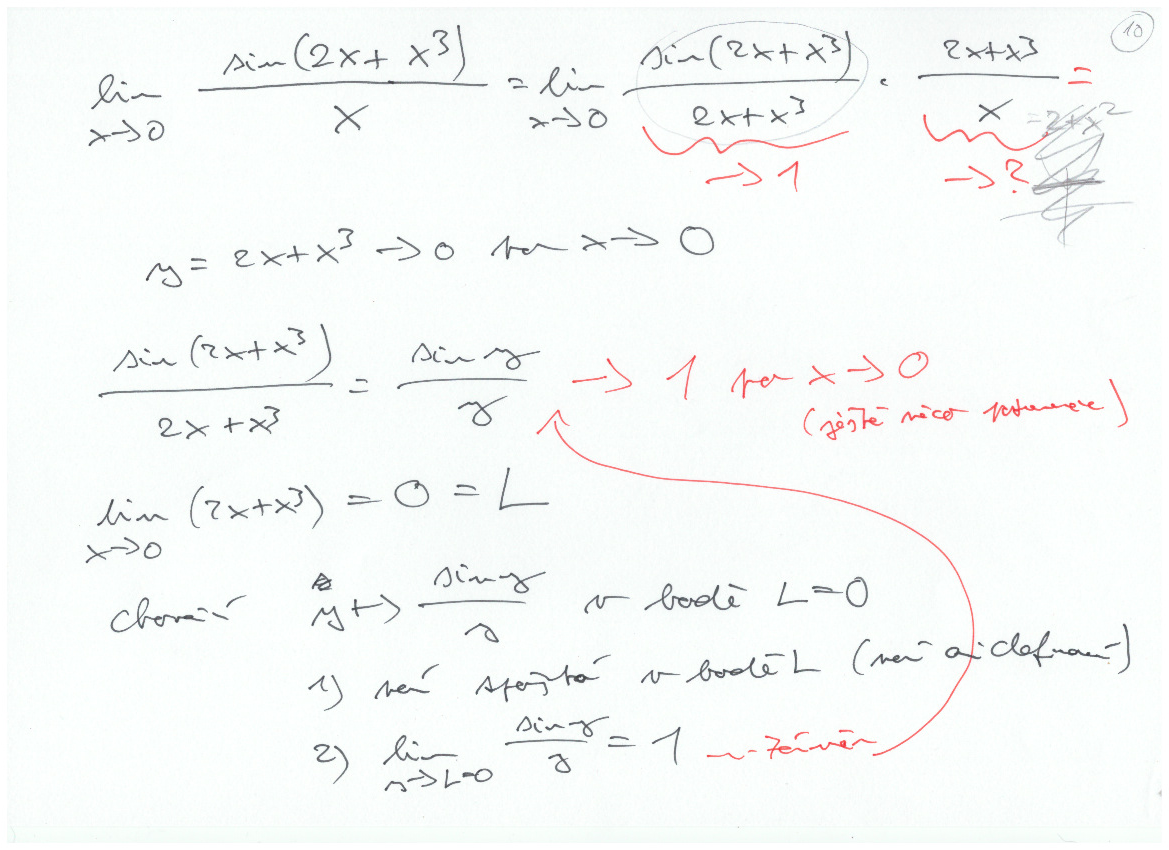 10
lim x→0 sin(2x + x³) / x = lim x→0 sin(2x+x³) / 2x+x³ · 2x+x³ / x =
= 2+x²
→ 1 → ?
y = 2x+x³ → 0 pro x → 0
sin(2x+x³) / 2x+x³ = sin y / y → 1 pro x → 0
(ještě něco
lim x→0 (2x+x³) = 0 = L
chování y ↦ sin y / y v bodě L=0
1) není spojitá v bodě L (není ani definovaná)
2) lim y→L=0 sin y / y = 1